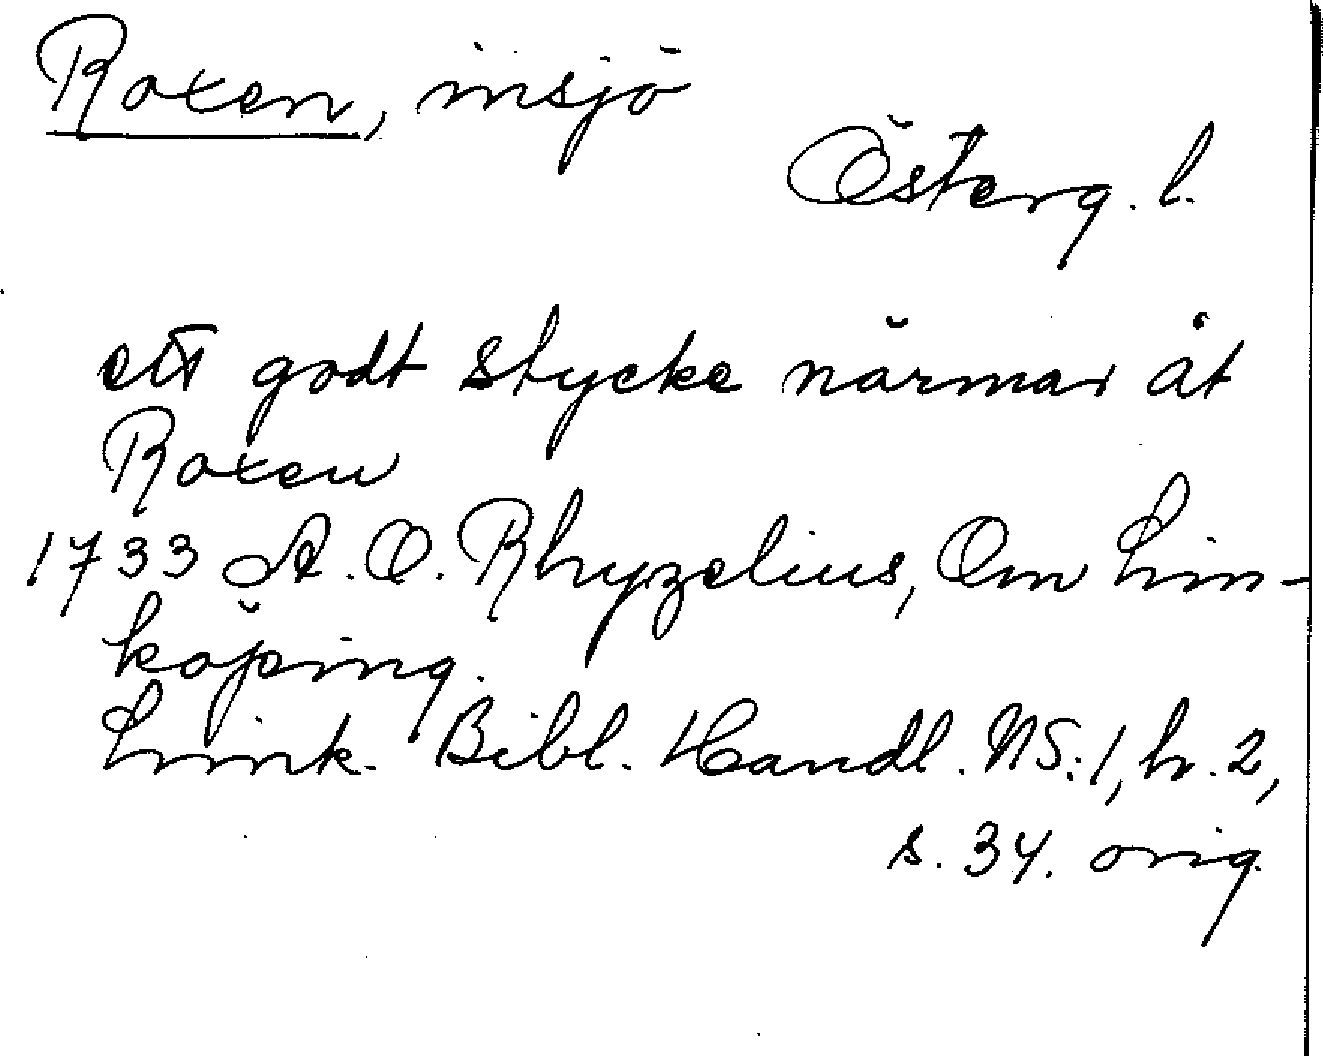 Roxen, insjö
Österg. l.
ett godt stycke närmar åt
Roxen
1733 A. O. Rhyzelius, Om Lin-
köping.
Link. Bibl. Handl. NS:1, h. 2,
s. 34. orig.